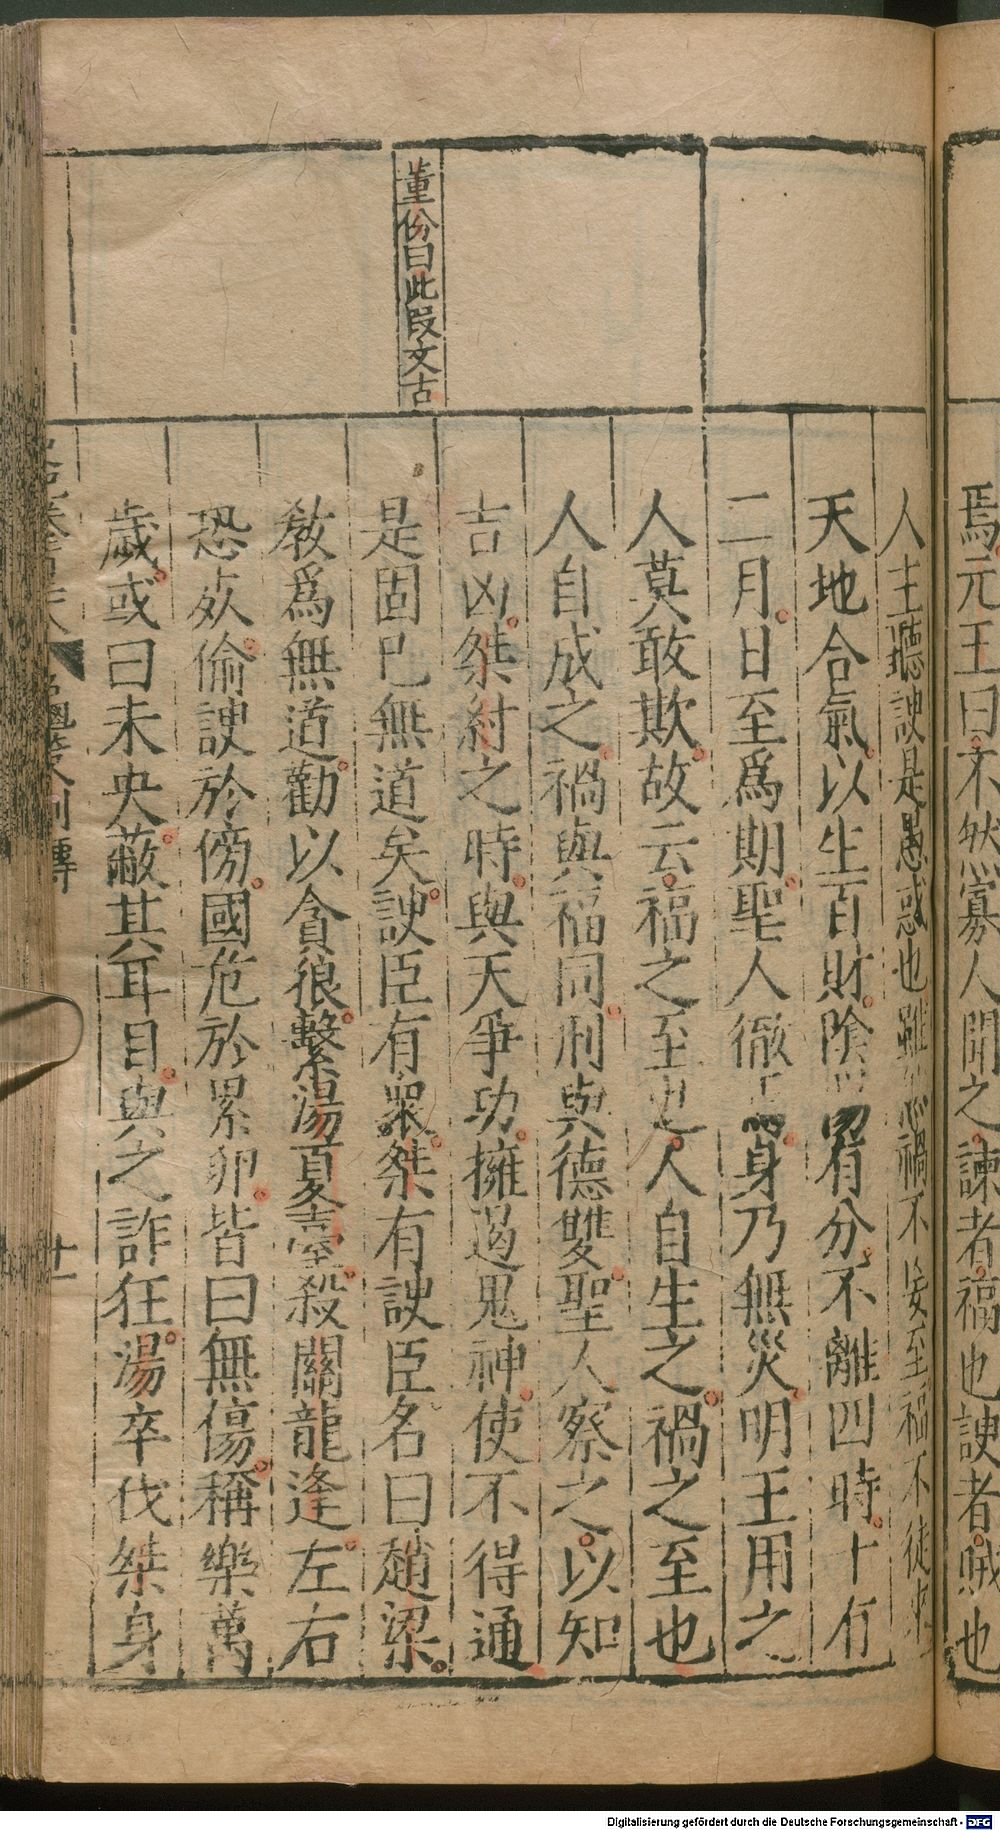 焉元王曰不然寡人聞之諫者福也諛者賊也
人主聽諛是愚惑也雖然禍不妄至福不徒來
天地合氣以生百財陰陽有分不離四時十有
二月日至爲期聖人徹焉身乃無災明王用之
人莫敢欺故云福之至也人自生之禍之至也
人自成之禍與福同刑與德雙聖人察之以知
吉凶桀紂之時與天爭功擁遏鬼神使不得通
是固已無道矣諛臣有衆桀有諛臣名曰趙梁
教爲無道勸以貪狼繫湯夏臺殺關龍逢左右
恐死偷諛於傍國危於累卵皆曰無傷稱樂萬
歲或曰未央蔽其耳目與之詐狂湯卒伐桀身
董份曰此段文古
龜策列傳
十一
Digitalisierung gefördert durch die Deutsche Forschungsgemeinschaft - DFG